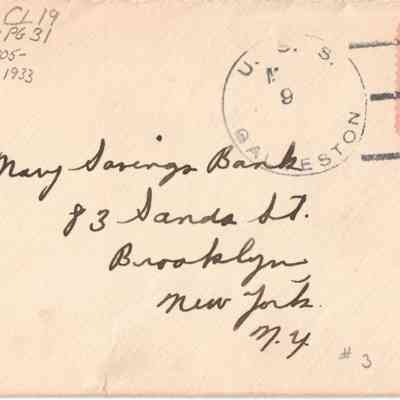 CL 19
PG 31
05-
1933
U. S. S.
9
GALVESTON
Navy Savings Bank
83 Sands St.
Brooklyn
New York.
N.Y.
# 3